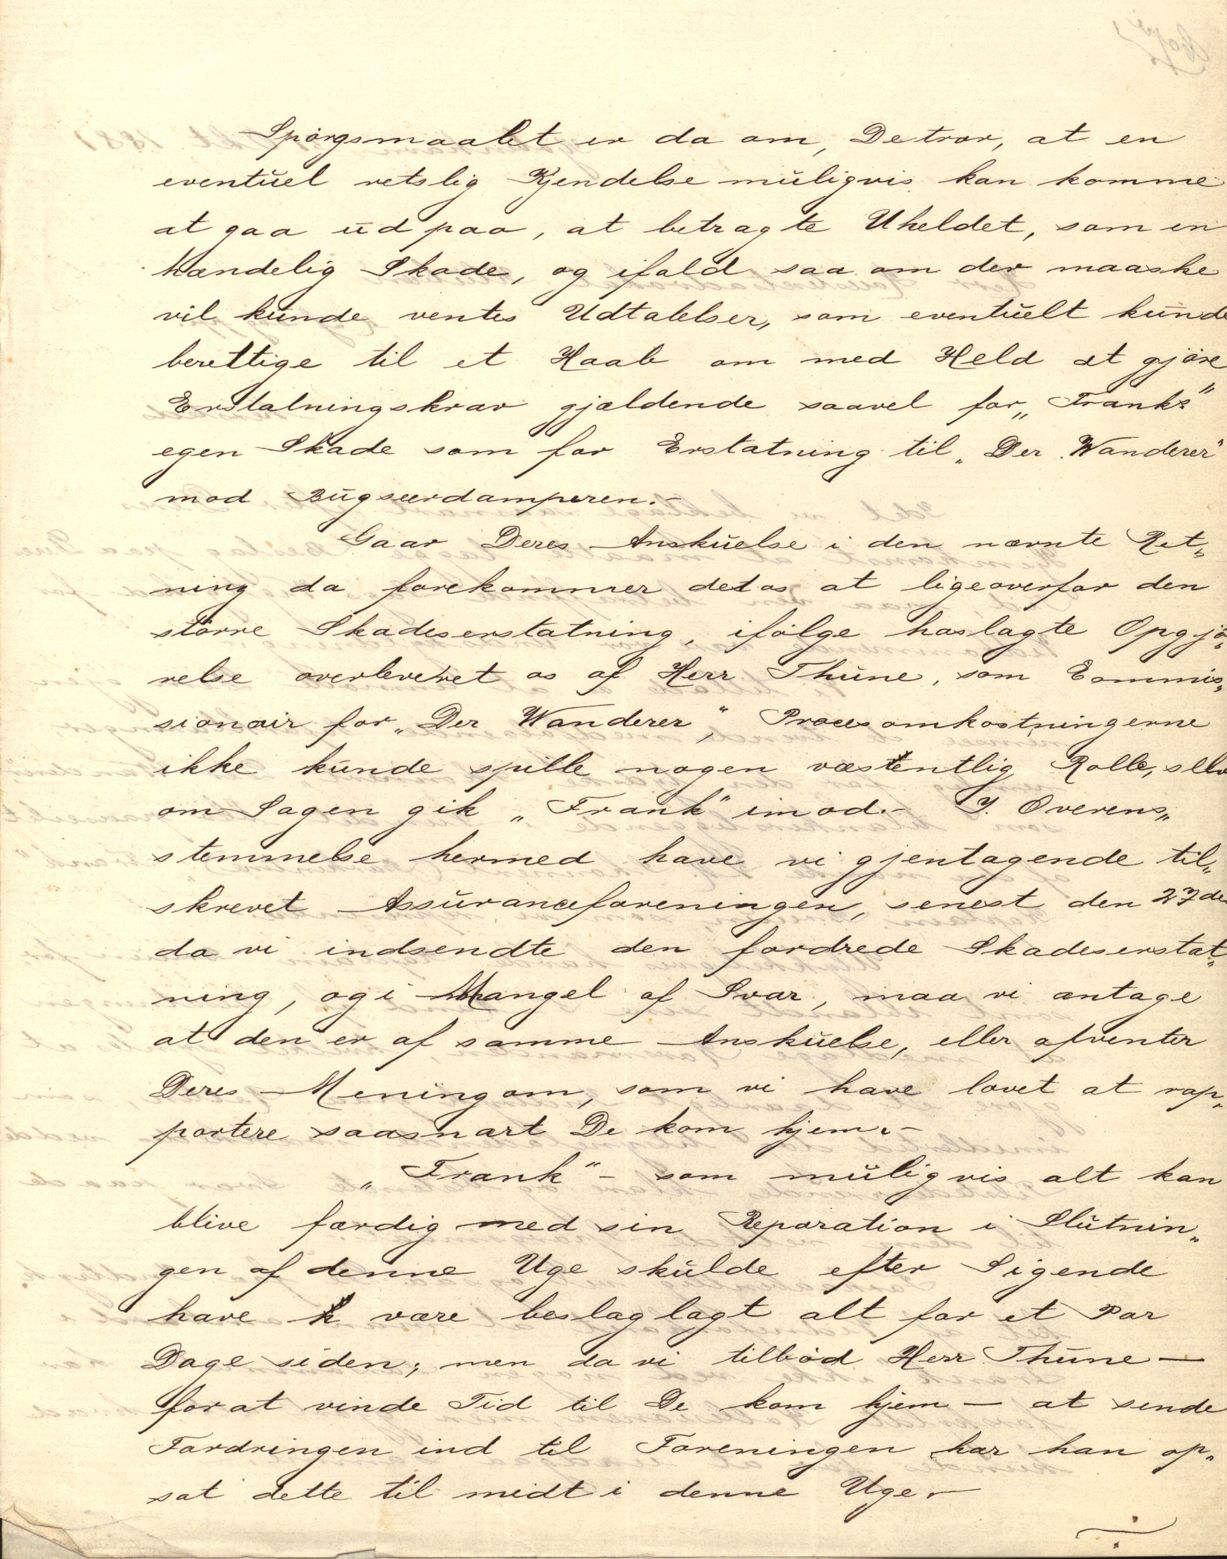 Spørgsmaalet er da om, De tror, at en
eventuel retslig Kjendelse muligvis kan komme
at gaa ud paa, at betragte Uheldet, som en
hændelig Skade, og ifald saa om der maaske
vil kunde ventes Udtalelser, som eventuelt kunde
berettige til et Haab om med Held at gjøre
Erstatningskrav gjældende saavel for „Franks"
egen Skade som for Erstatning til „Der Wanderer"
mod Bugserdamperen.-
Gaar Deres Anskuelse i den nævnte Ret-
ning da forekommer det os at ligeoverfor den
større Skadeserstatning, ifølge hoslagte Opgjø-
relse overleveret os af Herr Thune, som Commis-
sionair for „Der Wanderer", Procesomkostningerne
ikke kunde spille nogen væsentlig Rolle, selv
om Sagen gik „Frank" imod.- I Overens„
stemmelse hermed have vi gjentagende til„
skrevet Assuranceforeningen, senest den 27de
da vi indsendte den fordrede Skadeserstat„
ning, og i Mangel af Svar, maa vi antage
at den er af samme Anskuelse, eller afventer
Deres Mening om, som vi have lovet at rap„
portere saasnart De kom hjem.-
„Frank" - som muligvis alt kan
blive færdig med sin Reparation i Slutnin„
gen af denne Uge skulde efter Sigende
have være beslaglagt alt for et Par
Dage siden; men da vi tilbød Herr Thune —
for at vinde Tid til De kom hjem — at sende
Fordringen ind til Foreningen har han op„
sat dette til midt i denne Uge.-